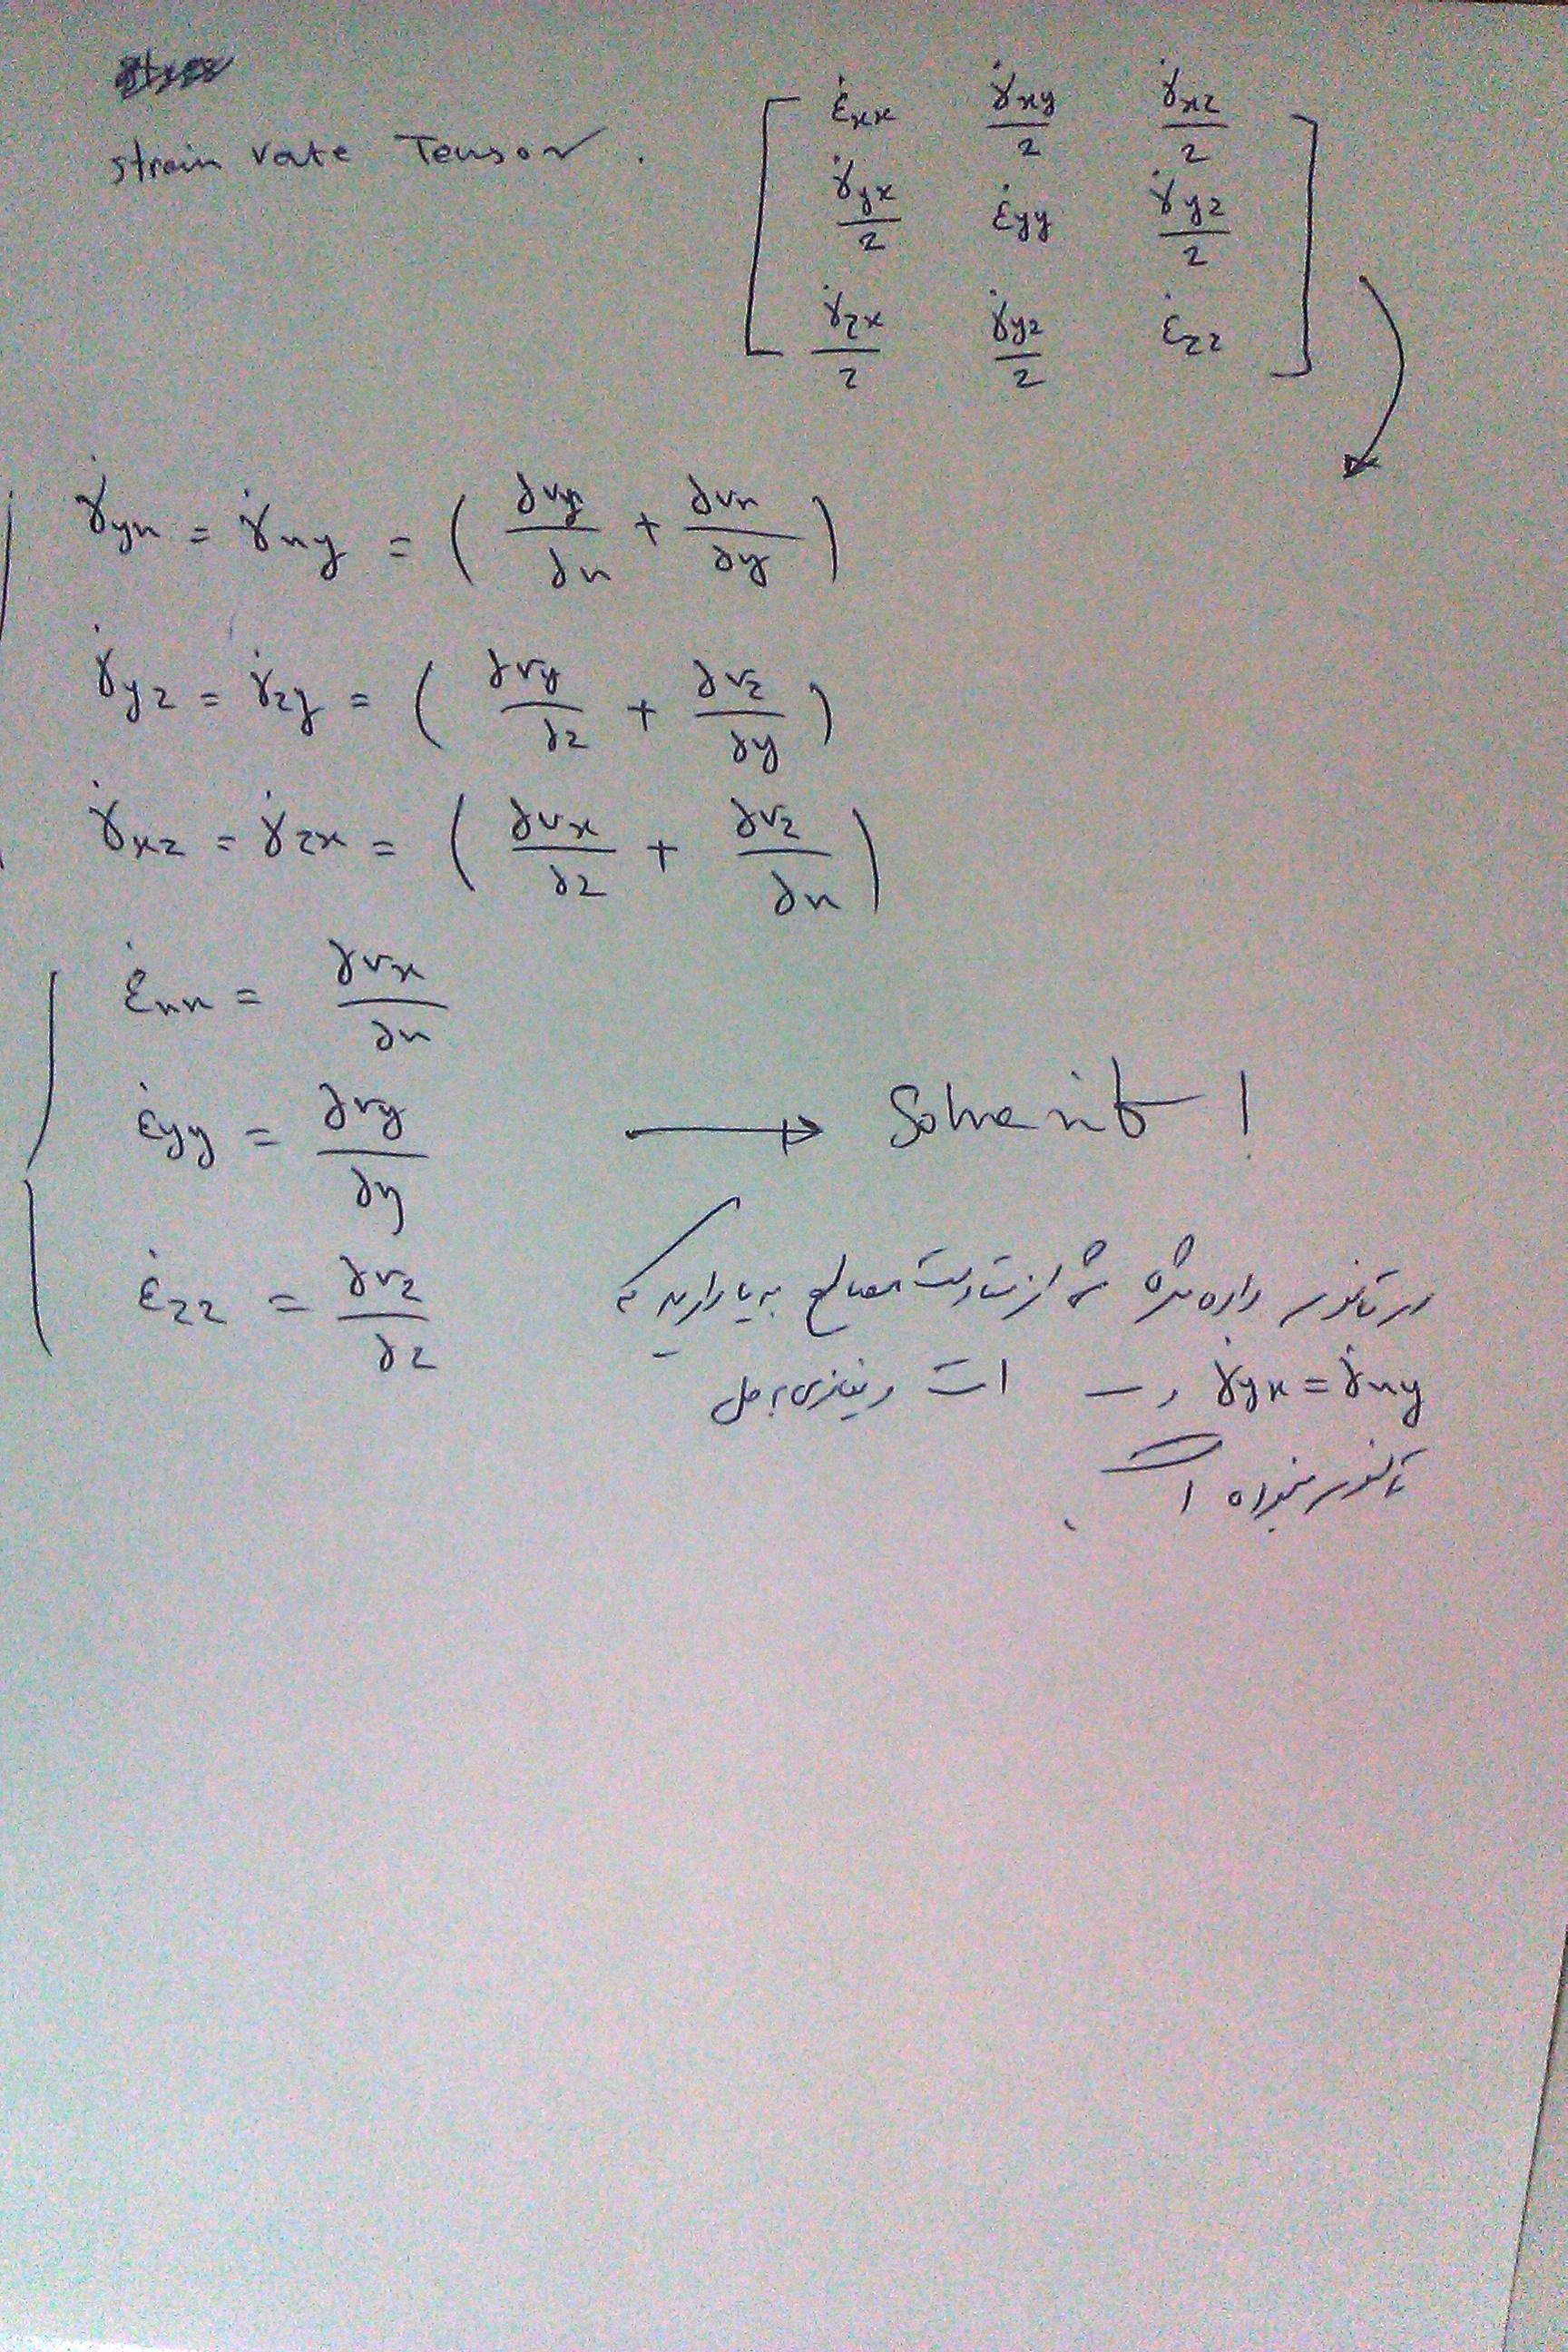 strain rate Tensor.
[ ε̇xx γ̇xy/2 γ̇xz/2
γ̇yx/2 ε̇yy γ̇yz/2
γ̇zx/2 γ̇yz/2 ε̇zz ]
γ̇yx = γ̇xy = ( ∂vy/∂x + ∂vx/∂y )
γ̇yz = γ̇zy = ( ∂vy/∂z + ∂vz/∂y )
γ̇xz = γ̇zx = ( ∂vx/∂z + ∂vz/∂x )
ε̇xx = ∂vx/∂x
ε̇yy = ∂vy/∂y → Solve it !
ε̇zz = ∂vz/∂z
در تانسور داده شده از مقاومت مصالح به یاد داریم که
γ̇yx = γ̇xy و ... است و نیازی به حل
تانسور نبوده است.